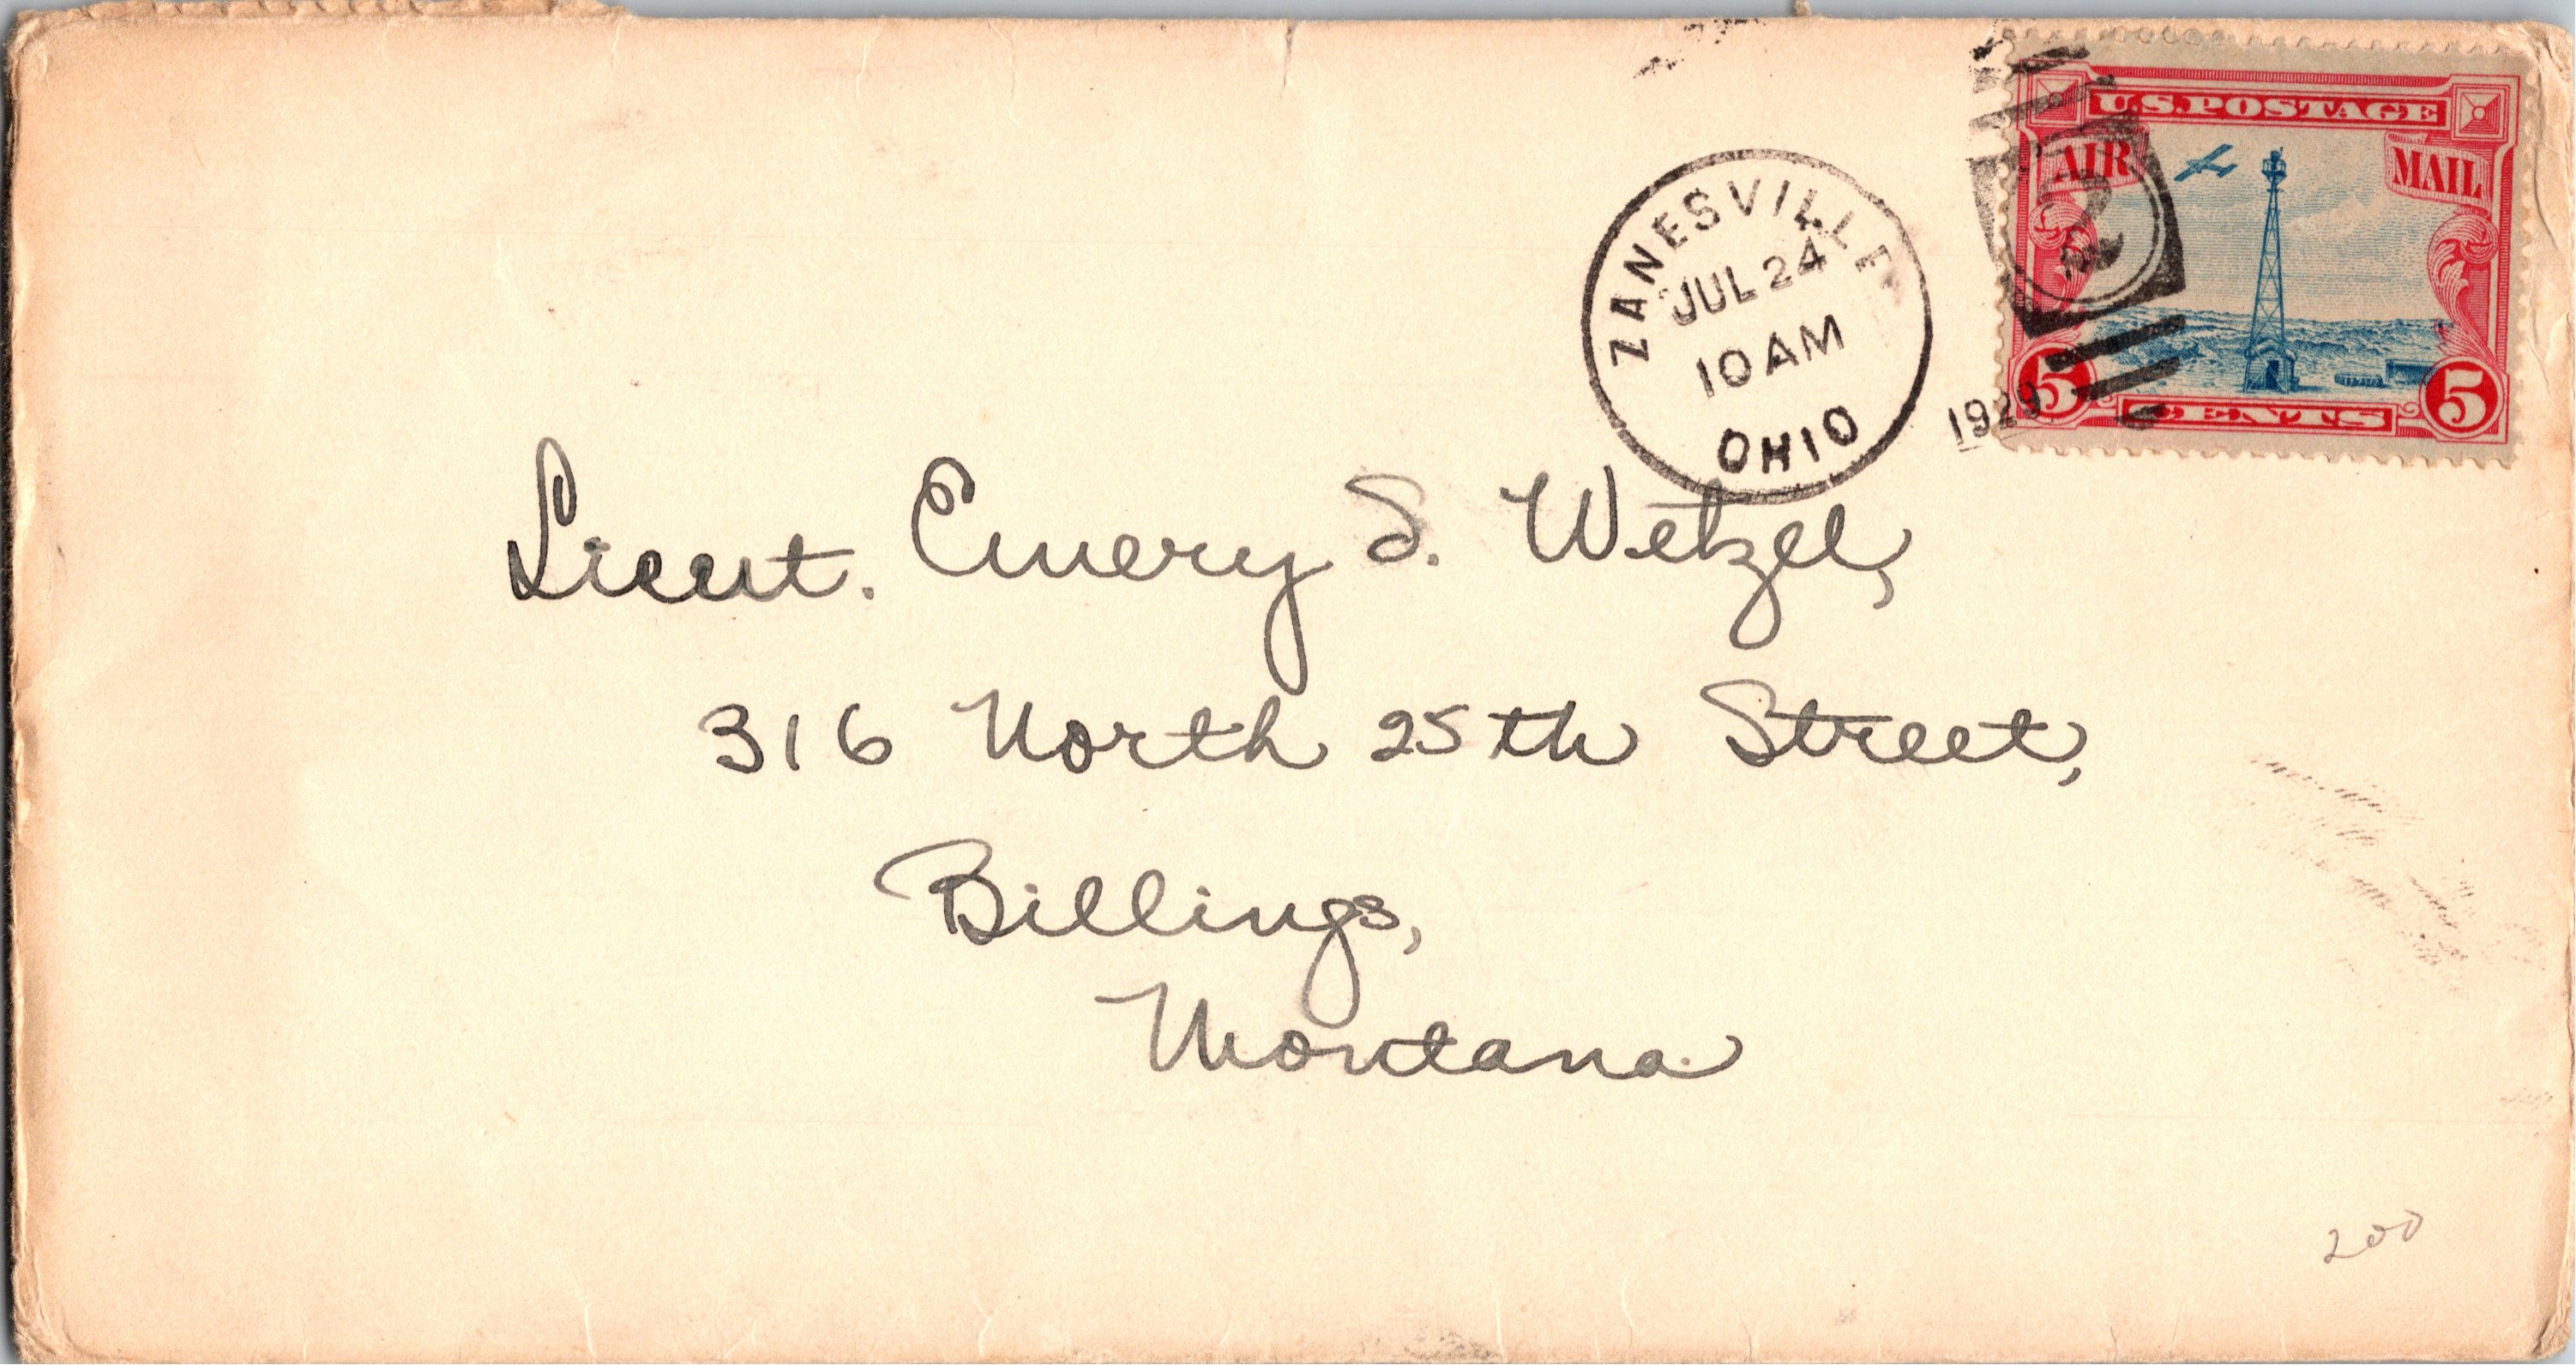 U.S. POSTAGE
AIR MAIL
5 CENTS 5
2
ZANESVILLE
JUL 24
10 AM
OHIO
1929
Lieut. Emery S. Wetzel,
316 North 25th Street,
Billings,
Montana.
200